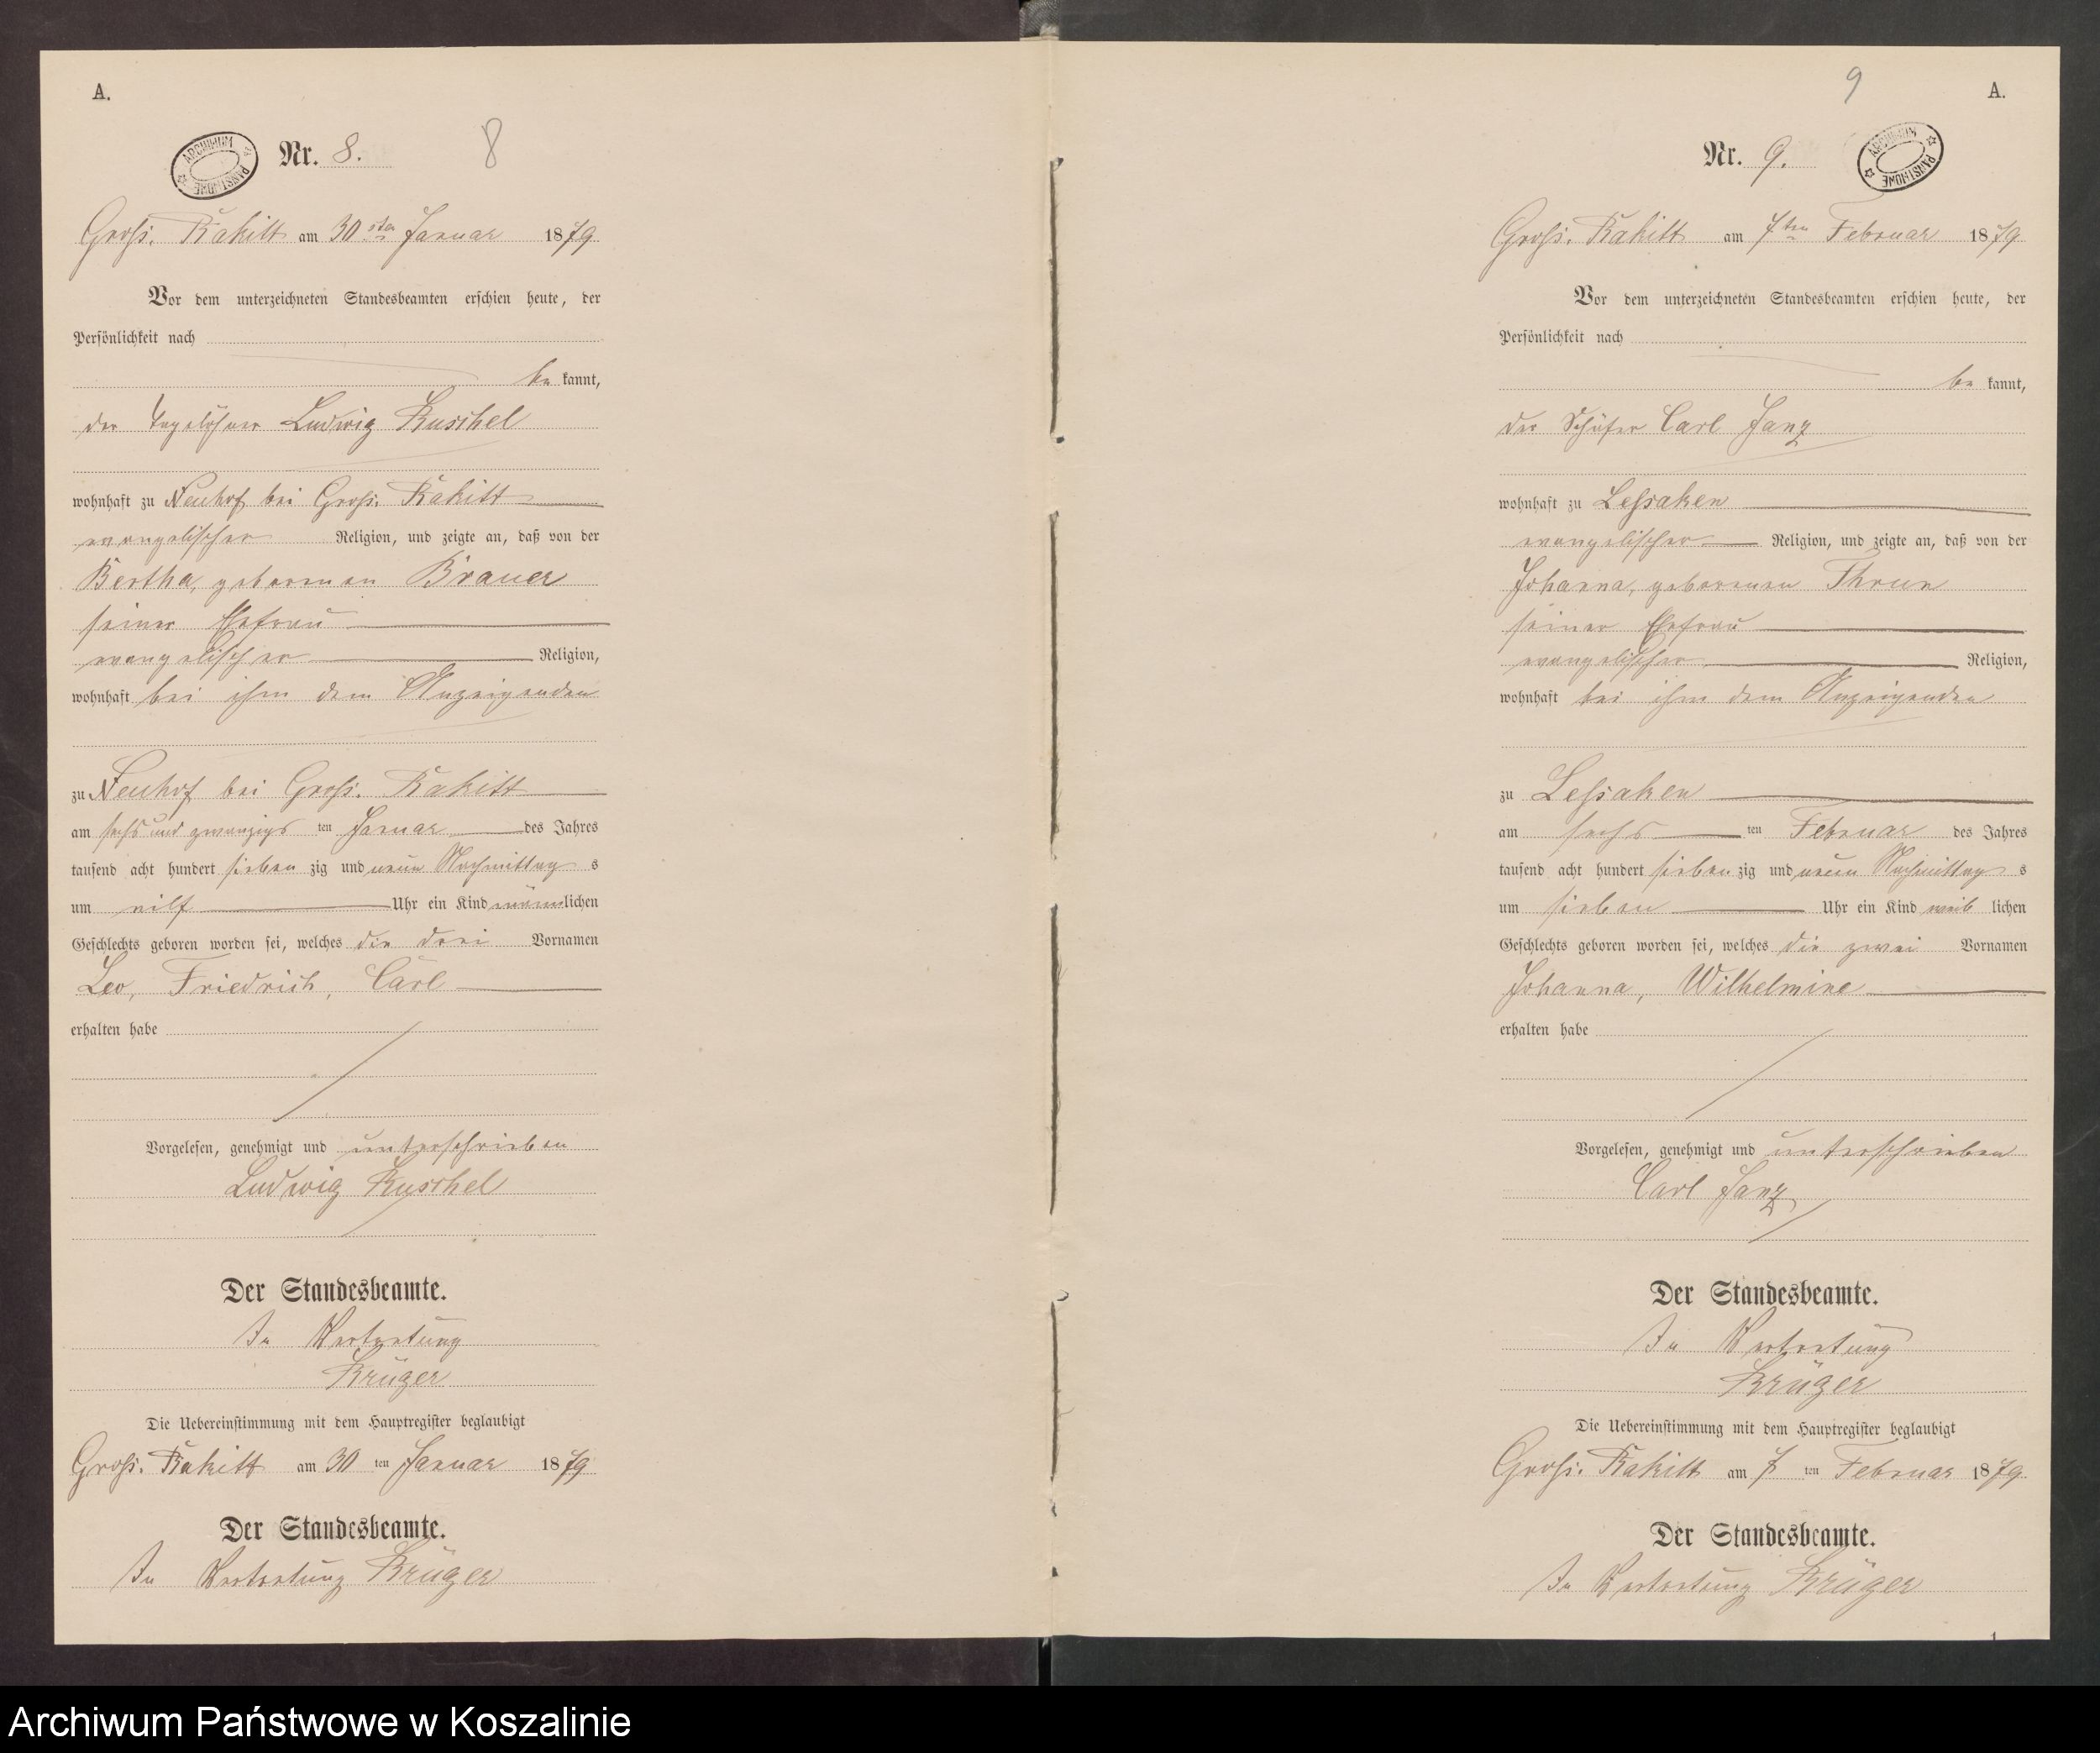 A.
ARCHIWUM PAŃSTWOWE
Nr. 8.
8
Groß. Rakitt am 30sten Januar 1879
Vor dem unterzeichneten Standesbeamten erschien heute, der
Persönlichkeit nach
be kannt,
der Tagelöhner Ludwig Kuschel
wohnhaft zu Neuhof bei Groß. Rakitt
evangelischer Religion, und zeigte an, daß von der
Bertha, geborenen Brauer
seiner Ehefrau
evangelischer Religion,
wohnhaft bei ihm dem Anzeigenden
zu Neuhof bei Groß. Rakitt
am sechs und zwanzigs ten Januar des Jahres
tausend acht hundert sieben zig und neun Nachmittag s
um eilf Uhr ein Kind männlichen
Geschlechts geboren worden sei, welches die drei Vornamen
Leo, Friedrich, Carl
erhalten habe
Vorgelesen, genehmigt und unterschrieben
Ludwig Kuschel
Der Standesbeamte.
In Vertretung
Krüger
Die Uebereinstimmung mit dem Hauptregister beglaubigt
Groß. Rakitt am 30 ten Januar 1879
Der Standesbeamte.
In Vertretung Krüger
9
A.
Nr. 9.
ARCHIWUM PAŃSTWOWE
Groß. Rakitt am 7ten Februar 1879
Vor dem unterzeichneten Standesbeamten erschien heute, der
Persönlichkeit nach
be kannt,
der Schäfer Carl Janz
wohnhaft zu Leßaken
evangelischer Religion, und zeigte an, daß von der
Johanna, geborenen Thrun
seiner Ehefrau
evangelischer Religion,
wohnhaft bei ihm dem Anzeigenden
zu Leßaken
am sechs ten Februar des Jahres
tausend acht hundert sieben zig und neun Nachmittag s
um sieben Uhr ein Kind weib lichen
Geschlechts geboren worden sei, welches die zwei Vornamen
Johanna, Wilhelmine
erhalten habe
Vorgelesen, genehmigt und unterschrieben
Carl Janz
Der Standesbeamte.
In Vertretung
Krüger
Die Uebereinstimmung mit dem Hauptregister beglaubigt
Groß. Rakitt am 7 ten Februar 1879
Der Standesbeamte.
In Vertretung Krüger
Archiwum Państwowe w Koszalinie